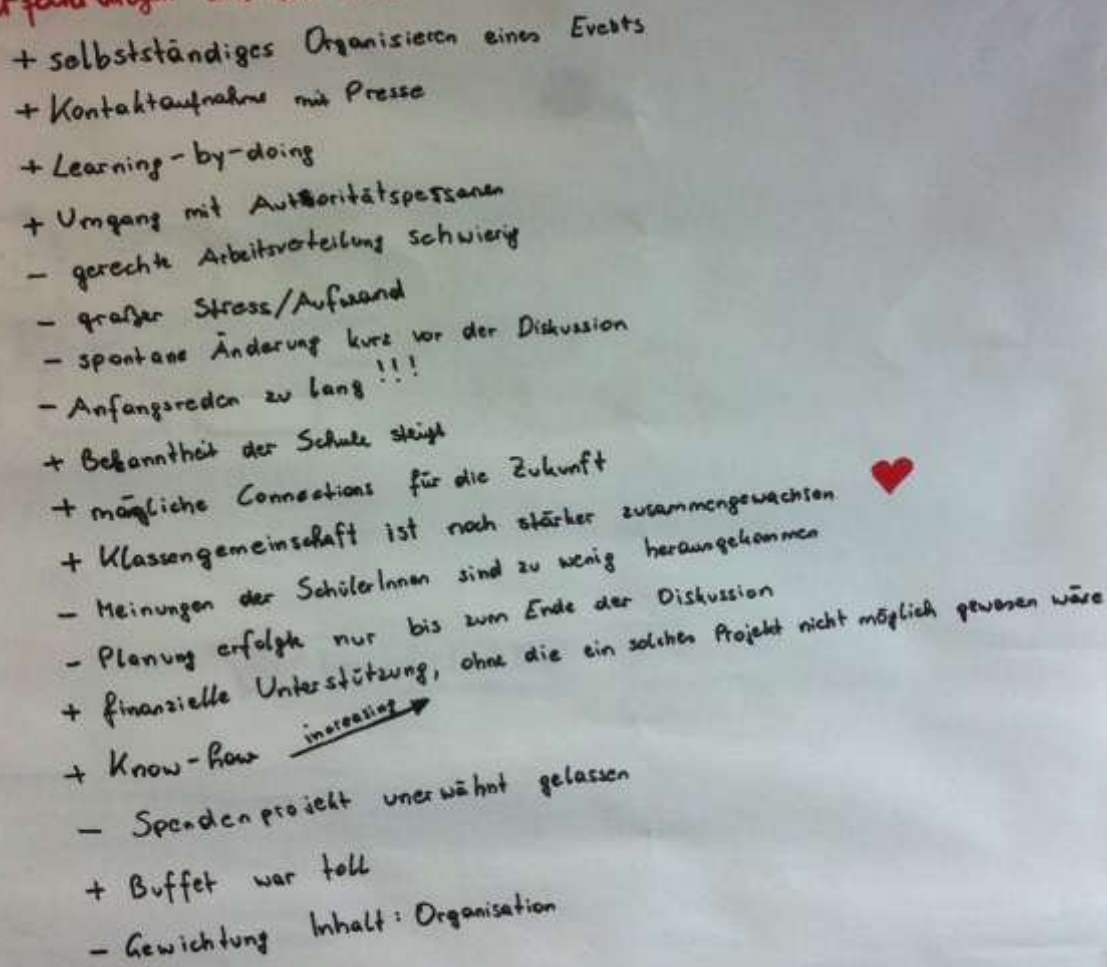 + selbstständiges Organisieren eines Events
+ Kontaktaufnahme mit Presse
+ Learning-by-doing
+ Umgang mit Autoritätspersonen
- gerechte Arbeitsverteilung schwierig
- großer Stress/Aufwand
- spontane Änderung kurz vor der Diskussion
- Anfangsreden zu lang !!!
+ Bekanntheit der Schule steigt
+ mögliche Connections für die Zukunft
+ Klassengemeinschaft ist noch stärker zusammengewachsen
- Meinungen der SchülerInnen sind zu wenig herausgekommen
- Planung erfolgte nur bis zum Ende der Diskussion
+ finanzielle Unterstützung, ohne die ein solches Projekt nicht möglich gewesen wäre
+ Know-how increasing
- Spendenprojekt unerwähnt gelassen
+ Buffet war toll
- Gewichtung Inhalt : Organisation